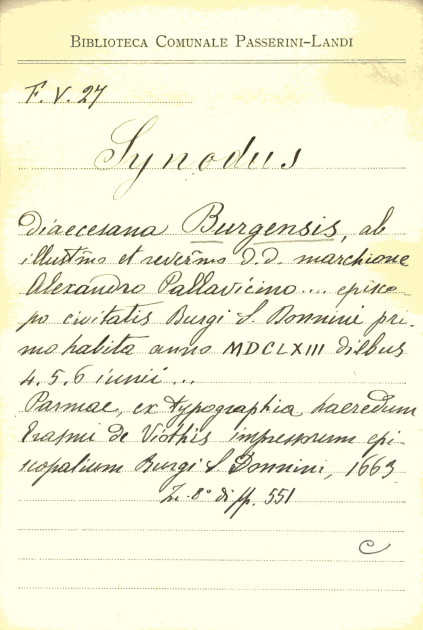 BIBLIOTECA COMUNALE PASSERINI-LANDI
F. V. 27
Synodus
diaecesana Burgensis, ab
illustr̄mo et rever̄mo d. d. marchione
Alexandro Pallavicino .... episco-
po civitatis Burgi S. Donnini pri-
mo habita anno MDCLXIII diebus
4. 5. 6 iunii ...
Parmae, ex typographia haeredum
Erasmi de Viothis impressorum epi-
scopalium Burgi S. Donnini, 1663
8° di pp. 551
C